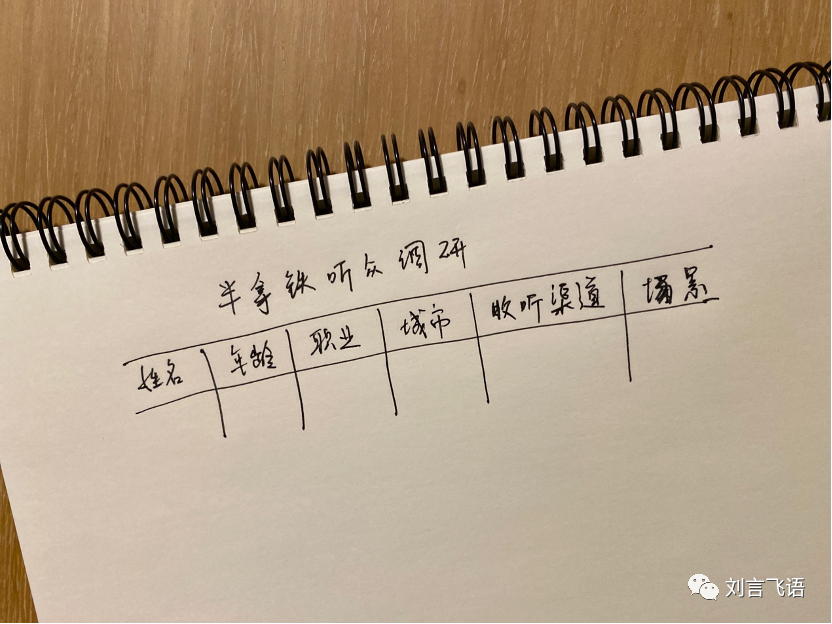 半拿铁听众调研
姓名 年龄 职业 城市 收听渠道 场景
刘言飞语